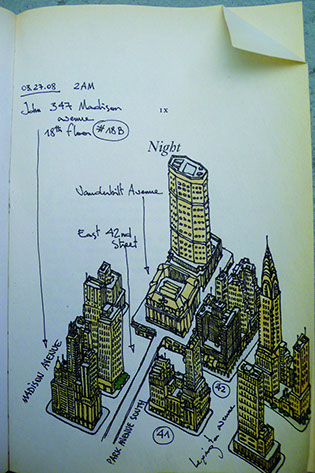 03.27.08 2AM
John 347 Madison
avenue
18th floor #18B
IX
Night
Vanderbilt Avenue
East 42nd
Street
MADISON AVENUE
PARK AVENUE SOUTH
41
42
Lexington avenue